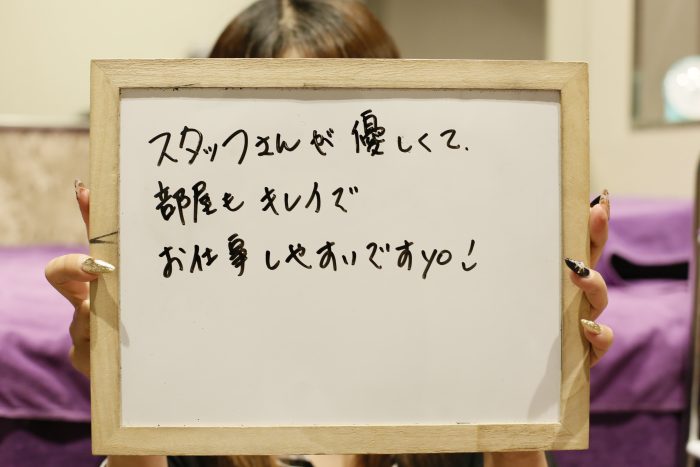 スタッフさんが優しくて、
部屋もキレイで
お仕事しやすいですyo！